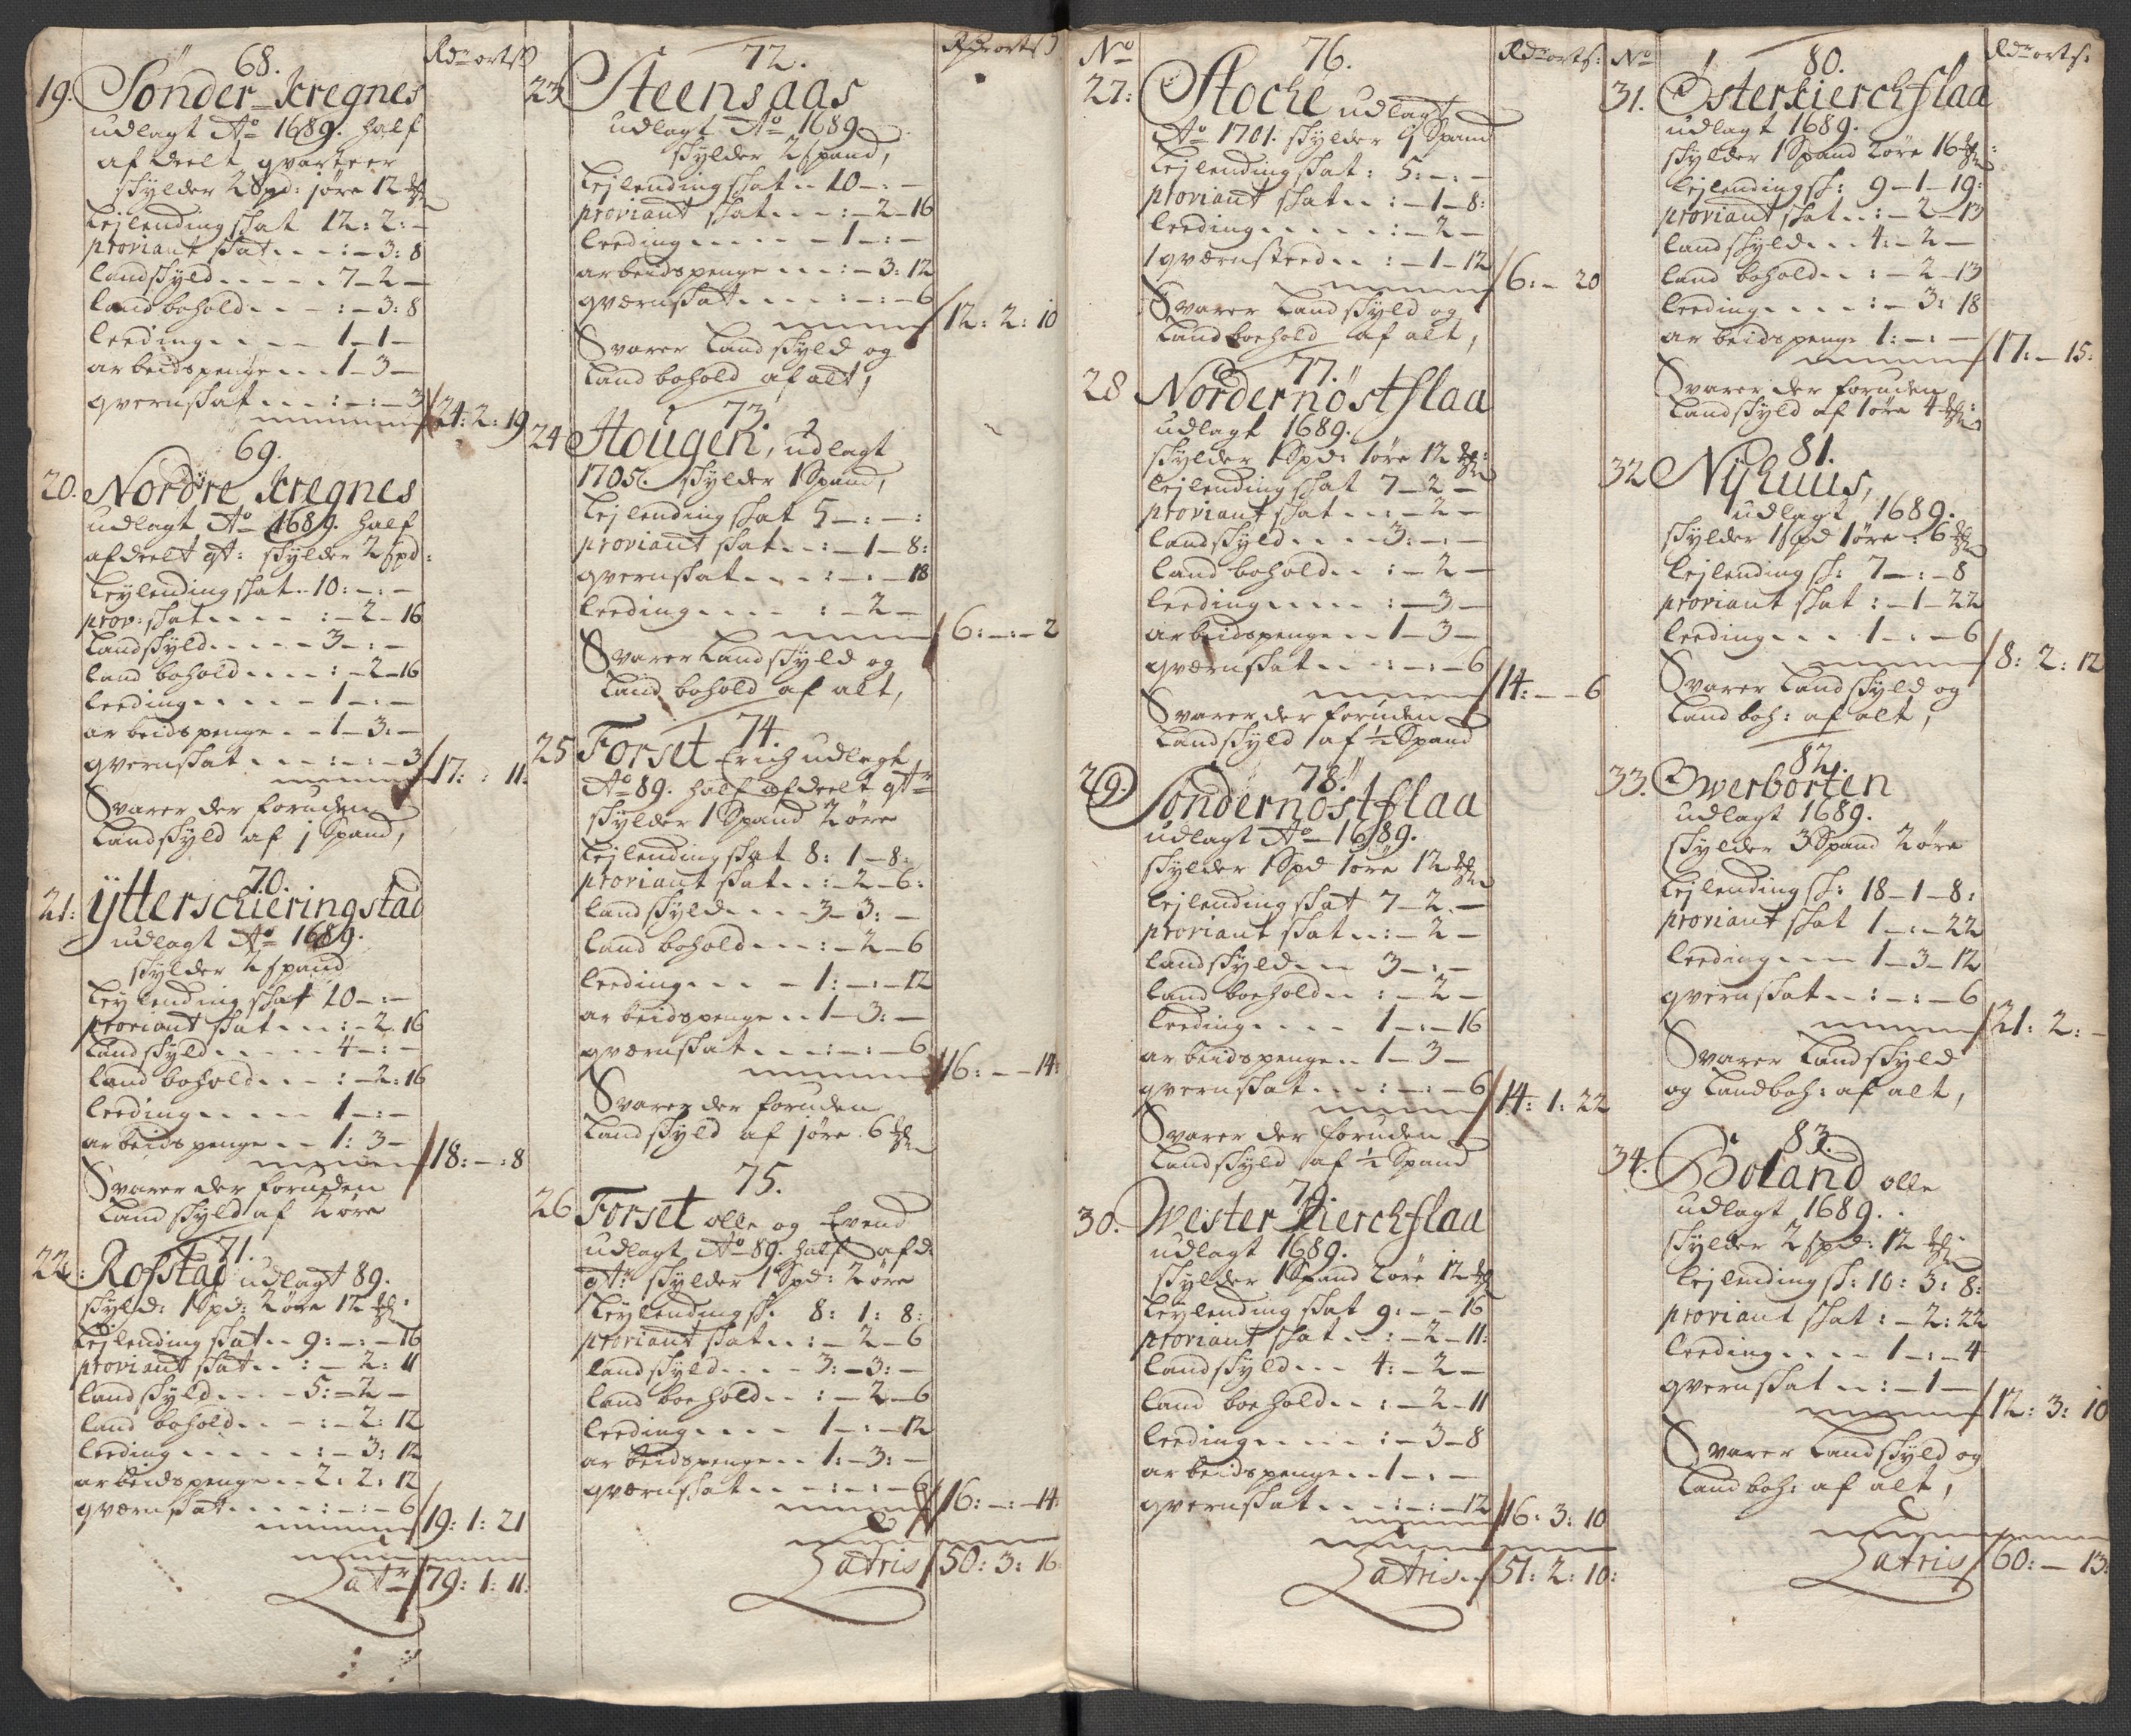 68.
Rdr ort ß
19. Sönder Kregnes
udlagt Ao 1689. half
afdeelt qvarteer
skylder 2 Spd: 1 öre 12 
Leylending skat 12: 2: -
proviant skat . . . : - 3: 8
Landskyld . . . . . 7 - 2 -
Land bohold . . - : - 3: 8
Leeding . . . . . 1 - 1 -
arbeidspenge . . . 1 - 3 -
qvernskat . . . : - : - 3
24: 2: 19
69.
20. Nordre Kregnes
udlagt Ao 1689. half
afdeelt qt: skylder 2 spd:
Leylending skat . . 10: - : -
prov: skat . . . . : - 2 - 16
Landskyld . . . . . 3 - : -
Land bohold . . . . : - 2 - 16
Leeding . . . . . 1 - : -
arbeidspenge . . 1 - 3: -
qvernskat . . . : - : - 3
17: : 11:
Svarer der foruden
Landskyld af 1 Spand,
70.
21: ÿtterschieringstad
udlagt Ao 1689.
skylder 2 spand
Leylending skat 10 - : -
proviant skat . . . : - 2. 16
Landskyld . . . . . 4 - : -
Land bohold . . . : - 2: 16
Leeding . . . . . 1 - : -
arbeidspenge . . 1: 3 -
18: - : 8
Svarer der foruden
Landskyld af 2 öre
71.
22: Rofstad udlagt 89.
skyld: 1 Spd: 2 öre 12
Leylending skat . . 9: - : - 16
proviant skat . . : - 2: 11
Landskyld . . . . 5: - 2 -
Land bohold . . - : - 2: 12
Leeding . . . . . : - 3: 12
arbeidspenge . . 2: 2: 12
qværnskat . . . . : - : - 6
19: 1: 21
Latr 79: 1: 11:
72.
Rdr ort ß
23 Steensaas
udlagt Ao 1689
skylder 2 spand,
Leylending skat . . 10 - : -
proviant skat . . . : - 2 - 16
Leeding . . . . . - 1 - : -
arbeidspenge . . . : - 3: 12
qværnskat . . . . : - : - 6
12: 2: 10
Svarer Landskyld og
Land bohold af alt,
73.
24 Hougen, udlagt
1705. skylder 1 Spand,
Leylending skat 5 - : - :
proviant skat . . : - 1 - 8:
qvernskat . . . : - : - 18
Leeding . . . . : - 2 -
6: - : - 2
Svarer Landskyld og
Land bohold af alt,
74.
25 Forset Erich udlagt
Ao 89. half afdeelt qtr
skylder 1 Spand 2 öre
Leylending skat 8: 1 - 8:
proviant skat . . : - 2 - 6:
Landskyld . . . . 3 - 3: -
Land bohold . . . : - 2 - 6
Leeding . . . - 1: - : - 12
arbeidspenge . . 1 - 3: -
qværnskat . . . : - : - 6
16: - - 14:
Svarer der foruden
Landskyld af 1 öre. 6
75.
26 Forset olle og Evend
udlagt Ao 89. half afd:
qtr skylder 1 Spd: 2 öre
Leylending sk: 8: 1: 8:
proviant skat . . : - 2 - 6
Landskyld . . . . 3: - 3: -
Land boehold . . : - 2 - 6
Leeding . . . . 1 - : - 12
arbeidspenge . . 1: - 3: -
qværnskat . . . - : - : - 6
16: - : - 14:
Latris 50: 3: 16:
No
76.
Rdr ort ß:
27: Stoche udlagt
Ao 1701. skylder 1 Spand
Leylending skat: 5: - : -
proviant skat . . : - 1 - 8:
Leeding . . . . . : - 2 -
1 qværnsteed . . : - 1 - 12
6: - 20
Svarer Landskyld og
Land boehold af alt,
77.
28 Nordernöstflaa
udlagt 1689.
skylder 1 Spd: 1 öre 12
Leylending skat 7 - 2 -
proviant skat . . : - 2 -
Landskyld . . . . 3: - : -
Land bohold . . : - 2 -
Leeding . . . . . : - 3 -
arbeidspenge . . 1 - 3 -
qværnskat . . . : - : - 6
14: - - 6
Svarer der foruden
Landskyld af ½ Spand
78.
29. Söndernöstflaa
udlagt Ao 1689.
skylder 1 Spd 1 öre 12
Leylending skat 7 - 2. -
proviant skat . . : - 2 -
Landskyld . . . 3 - : -
Land boehold . . : - 2 -
Leeding . . . . 1 - : - 16
arbeidspenge . . 1 - 3 -
qvernskat . . . : - : - 6
14: 1: 22
Svarer der foruden
Landskyld af ½ Spand
79.
30. Wester Kierchflaa
udlagt 1689.
skylder 1 Spand 2 öre 12
Leylending skat 9: - - 16
proviant skat . . : - 2 - 11:
Landskyld . . . 4: - 2 -
Land boehold . . : - 2 - 11
Leeding . . . . : - 3 - 8
arbeidspenge . . 1 - : -
qvernskat . . . : - : - 12
16: 3: 10
Latris . . 51: 2: 10:
No
80.
Rdr ort ß:
31. Österkierchflaa
udlagt 1689.
skylder 1 Spand 2 öre 16
Leylending sk: 9 - 1 - 19:
proviant skat . . : - 2 - 13
Landskyld . . . 4: - 2 -
Land bohold . . : - 2 - 13
Leeding . . . . : - 3: 18
arbeidspenge 1: - : -
17: - 15:
Svarer der foruden
Landskyld af 1 öre 4
81.
32 Nÿhuus,
udlagt 1689.
skylder 1 spd 1 öre . 6
Leylending sk: 7 - : - 8
proviant skat : - 1 - 22
Leeding . . . 1 - : - 6
8: 2: 12
Svarer Landskyld og
Land boh: af alt,
82.
33. Owerborten
udlagt 1689.
skylder 3 Spand 2 öre
Leylending sk: 18 - 1 - 8:
proviant skat 1 - : - 22
Leeding . . . 1 - 3 - 12
qvernskat . . : - : - 6
21: 2: -
Svarer Landskyld
og Landboh: af alt,
83.
34. Boland olle
udlagt 1689.
skylder 2 spd: 12
Leylending sk: 10: 3: 8:
proviant skat : - 2: 22
Leeding . . . . 1 - : - 4
qvernskat . . : - 1 -
12: 3: 10
Svarer Landskyld og
Land boh: af alt,
Latris 60: - 13: